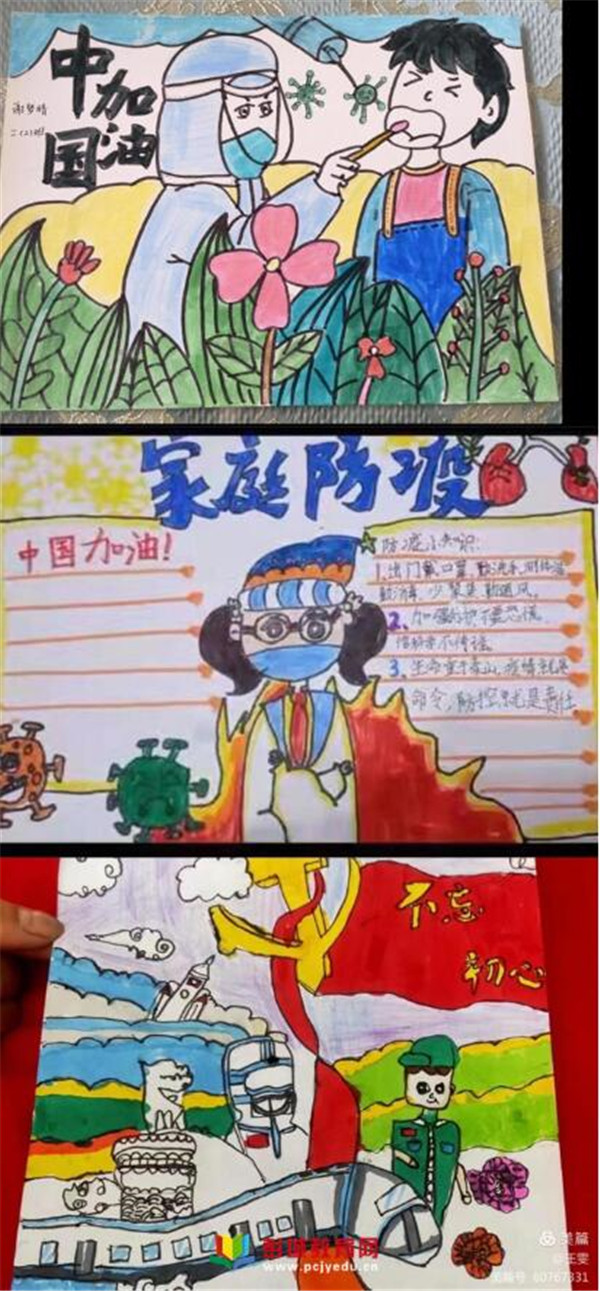 中国
加油
二(2)班
家庭防疫
中国加油!
防疫小知识:
1.出门戴口罩,勤洗手,测体温
勤消毒,少聚集,勤通风。
2、加强防护不要恐慌,
信科学不传谣。
3、生命重于泰山,疫情就是
命令,防控就是责任
不忘
初心
彭城教育网
www.pcjyedu.cn
美篇
@王雯
美篇号 80767331